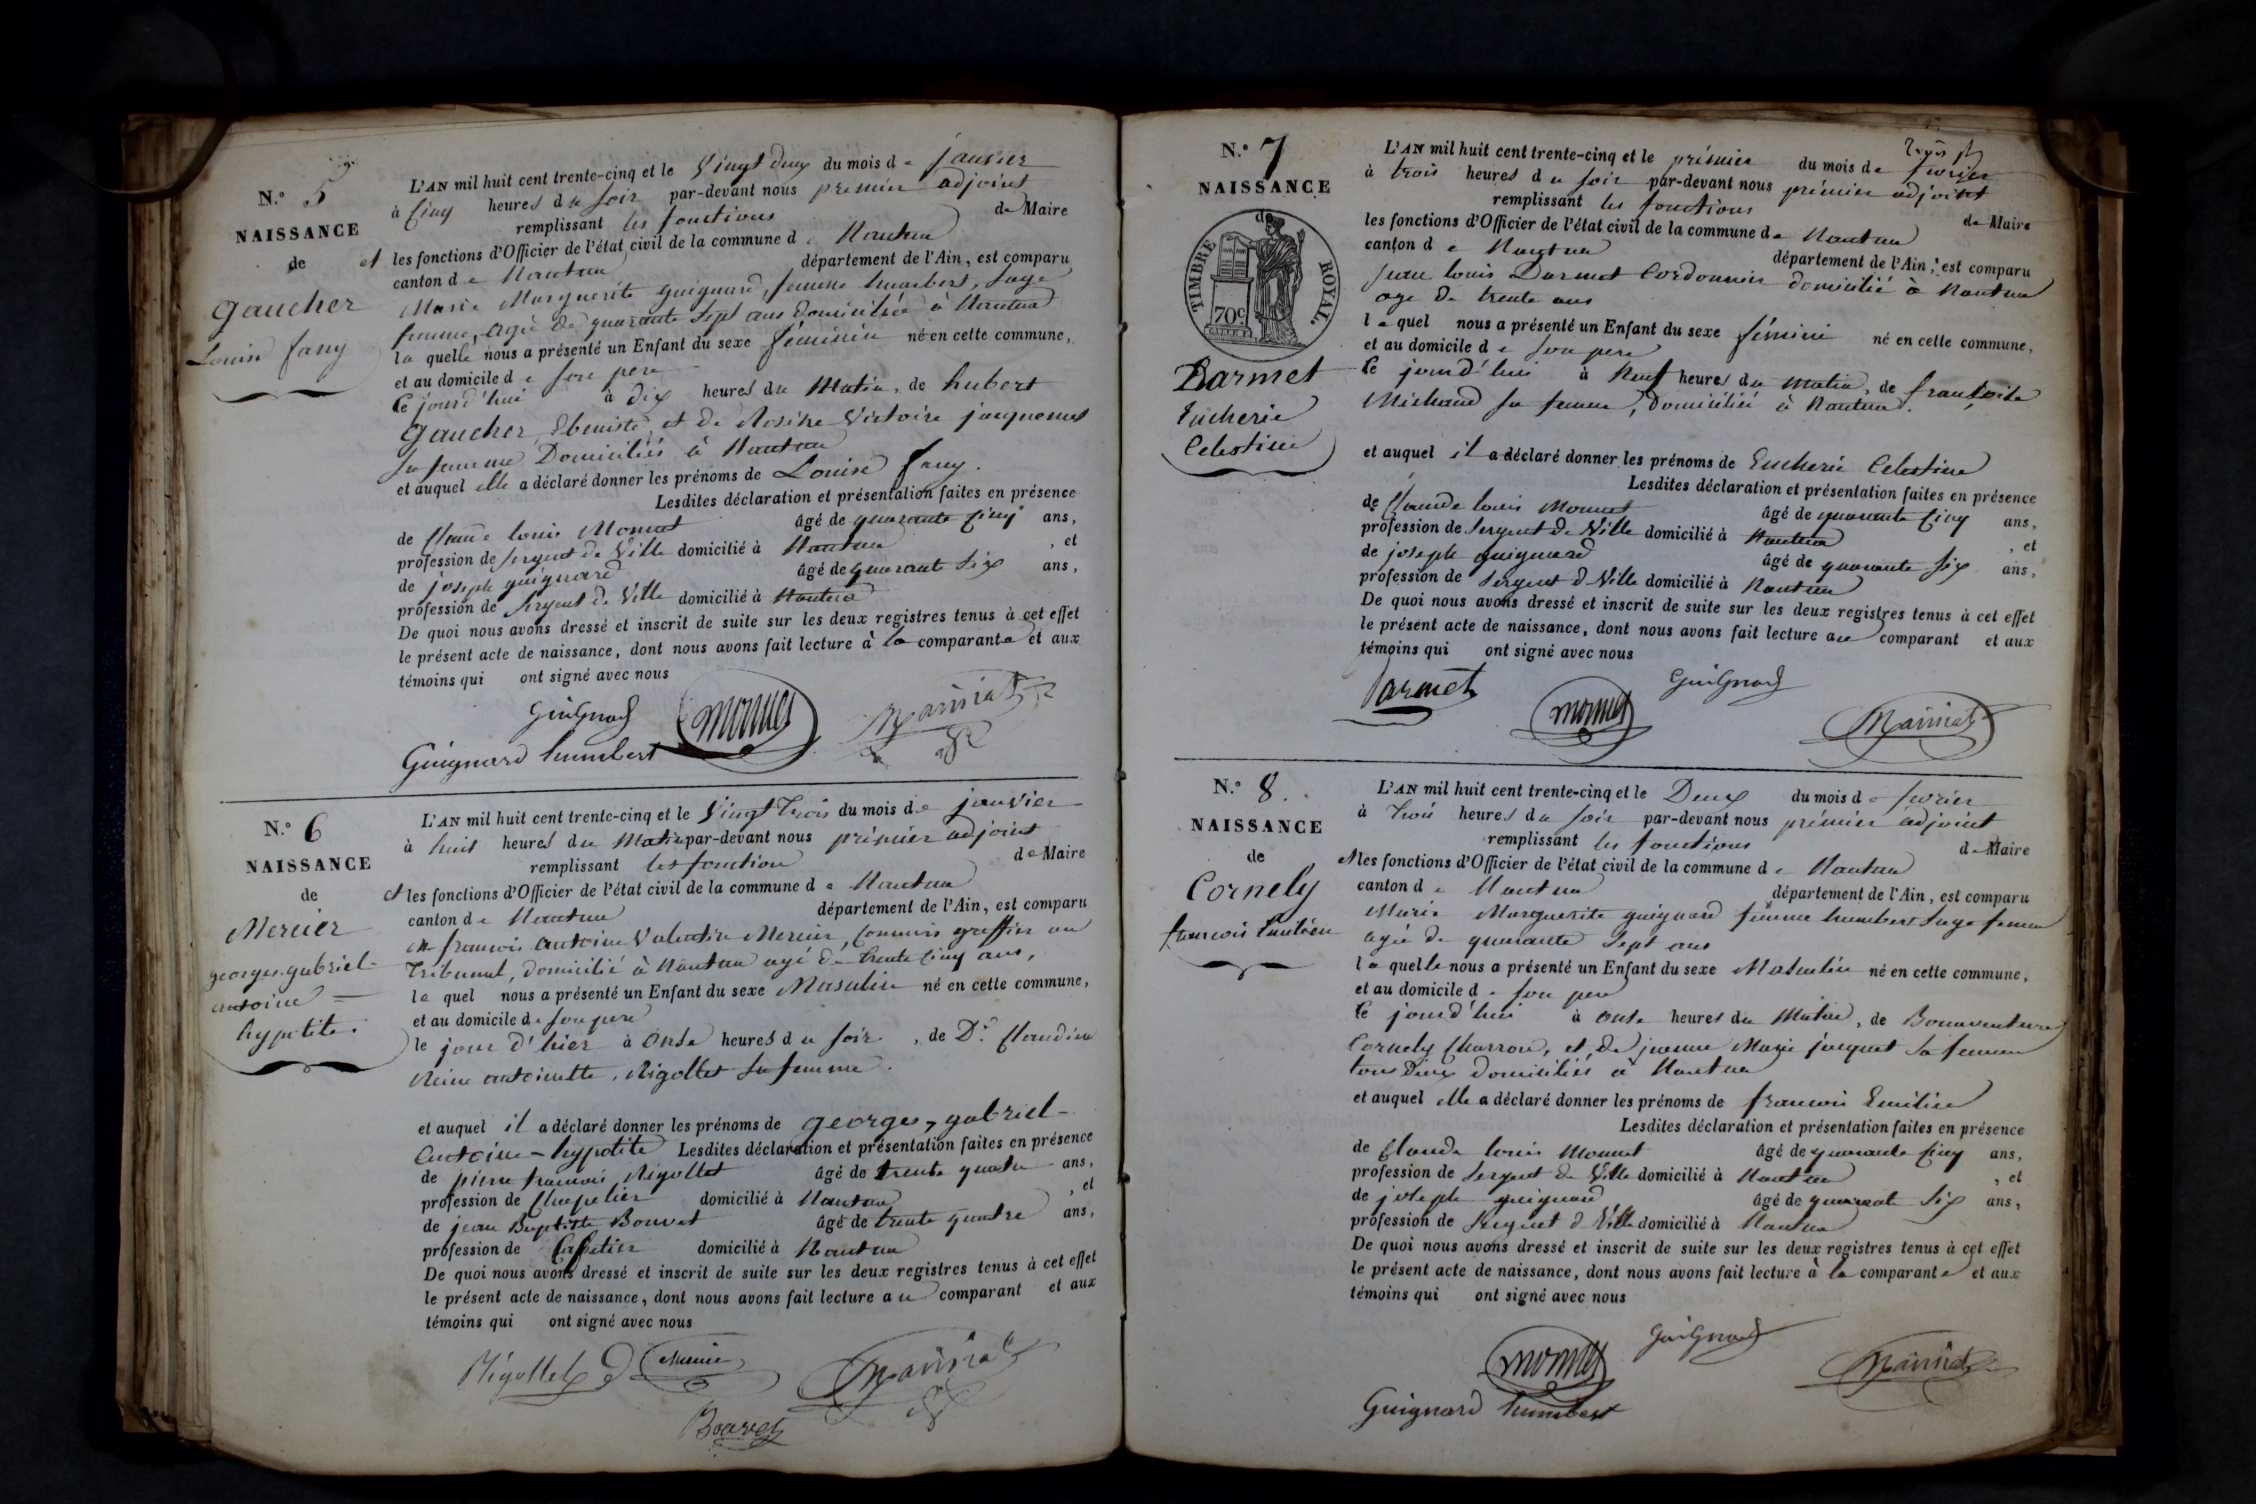 N.º 5
NAISSANCE
de
Gaucher
Louise fany
L'AN mil huit cent trente-cinq et le Vingt Deux du mois de janvier
à Cinq heures du Soir par-devant nous premier adjoint
remplissant les fonctions de Maire
et les fonctions d'Officier de l'état civil de la commune de Nantua
canton de Nantua département de l'Ain, est comparu
Marie Marguerite guignard, femme humbert, Sage
femme, agée de quarante Sept ans domiciliée à Nantua
laquelle nous a présenté un Enfant du sexe féminin né en cette commune,
et au domicile de son pere
Ce jourd'hui à dix heures du Matin, de hubert
Gaucher, Ebeniste, et de Rosine Victoire jacquemet
Sa femme Domiciliés à Nantua
et auquel elle a déclaré donner les prénoms de Louise fany.
Lesdites déclaration et présentation faites en présence
de Claude louis Monnet âgé de quarante Cinq ans,
profession de Sergent de Ville domicilié à Nantua , et
de joseph guignard âgé de quarante Six ans,
profession de Sergent de Ville domicilié à Nantua
De quoi nous avons dressé et inscrit de suite sur les deux registres tenus à cet effet
le présent acte de naissance, dont nous avons fait lecture à la comparante et aux
témoins qui ont signé avec nous
Guignard monnet
Guignard humbert
N.º 6
NAISSANCE
de
Mercier
georges-gabriel-
antoine =
hypolite.
L'AN mil huit cent trente-cinq et le Vingt Trois du mois de janvier
à huit heures du Matin par-devant nous prémier adjoint
remplissant les fonction de Maire
et les fonctions d'Officier de l'état civil de la commune de Nantua
canton de Nantua département de l'Ain, est comparu
Mr francois antoine Valentin Mercier, Commis greffier au
Tribunal, domicilié à Nantua agé de trente Cinq ans,
lequel nous a présenté un Enfant du sexe Masculin né en cette commune,
et au domicile de son pere
le jour d'hier à Onse heures du soir , de De. Claudine
Reine antoinette, Rigollet Sa femme.
et auquel il a déclaré donner les prénoms de georges, gabriel-
antoine-hypolite Lesdites déclaration et présentation faites en présence
de pierre francois Rigollet âgé de trente quatre ans,
profession de Chapelier domicilié à Nantua , et
de jean Baptiste Bouvet âgé de trente quatre ans,
profession de Caffetier domicilié à Nantua
De quoi nous avons dressé et inscrit de suite sur les deux registres tenus à cet effet
le présent acte de naissance, dont nous avons fait lecture au comparant et aux
témoins qui ont signé avec nous
Rigollet
Bouvet
N.º 7
NAISSANCE
de
TIMBRE ROYAL.
70c
Darmet
Eucherie
Celestine
L'AN mil huit cent trente-cinq et le prémier du mois de fevrier
à trois heures du Soir par-devant nous prémier adjoint
remplissant les fonctions de Maire
les fonctions d'Officier de l'état civil de la commune de Nantua
canton de Nantua département de l'Ain, est comparu
Jean louis Darmet Cordonnier domicilié à Nantua
age de trente ans
lequel nous a présenté un Enfant du sexe féminin né en cette commune,
et au domicile de son pere
Ce jourd'hui à Neuf heures du matin, de françoise
Michaud Sa femme, Domiciliée à Nantua.
et auquel il a déclaré donner les prénoms de Eucherie Celestine
Lesdites déclaration et présentation faites en présence
de Claude louis Monnet âgé de quarante Cinq ans,
profession de Sergent de Ville domicilié à Nantua , et
de joseph guignard âgé de quarante Six ans,
profession de Sergent de Ville domicilié à Nantua
De quoi nous avons dressé et inscrit de suite sur les deux registres tenus à cet effet
le présent acte de naissance, dont nous avons fait lecture au comparant et aux
témoins qui ont signé avec nous
Darmet monnet Guignard
N.º 8.
NAISSANCE
de
Cornely
francois Emilien
L'AN mil huit cent trente-cinq et le Deux du mois de fevrier
à Trois heures du Soir par-devant nous prémier adjoint
remplissant les fonctions de Maire
et les fonctions d'Officier de l'état civil de la commune de Nantua
canton de Nantua département de l'Ain, est comparu
Marie Marguerite guignard femme humbert Sage femme
agée de quarante Sept ans
laquelle nous a présenté un Enfant du sexe Masculin né en cette commune,
et au domicile de son pere
Ce jourd'hui à onse heures du Matin, de Bonaventure
Cornely Charron, et de jeanne Marie jacquet Sa femme
tous Deux domiciliés à Nantua
et auquel elle a déclaré donner les prénoms de francois Emilien
Lesdites déclaration et présentation faites en présence
de Claude louis Monnet âgé de quarante Cinq ans,
profession de Sergent de Ville domicilié à Nantua , et
de joseph guignard âgé de quarante Six ans,
profession de Sergent de Ville domicilié à Nantua
De quoi nous avons dressé et inscrit de suite sur les deux registres tenus à cet effet
le présent acte de naissance, dont nous avons fait lecture à la comparante et aux
témoins qui ont signé avec nous
monnet Guignard
Guignard humbert